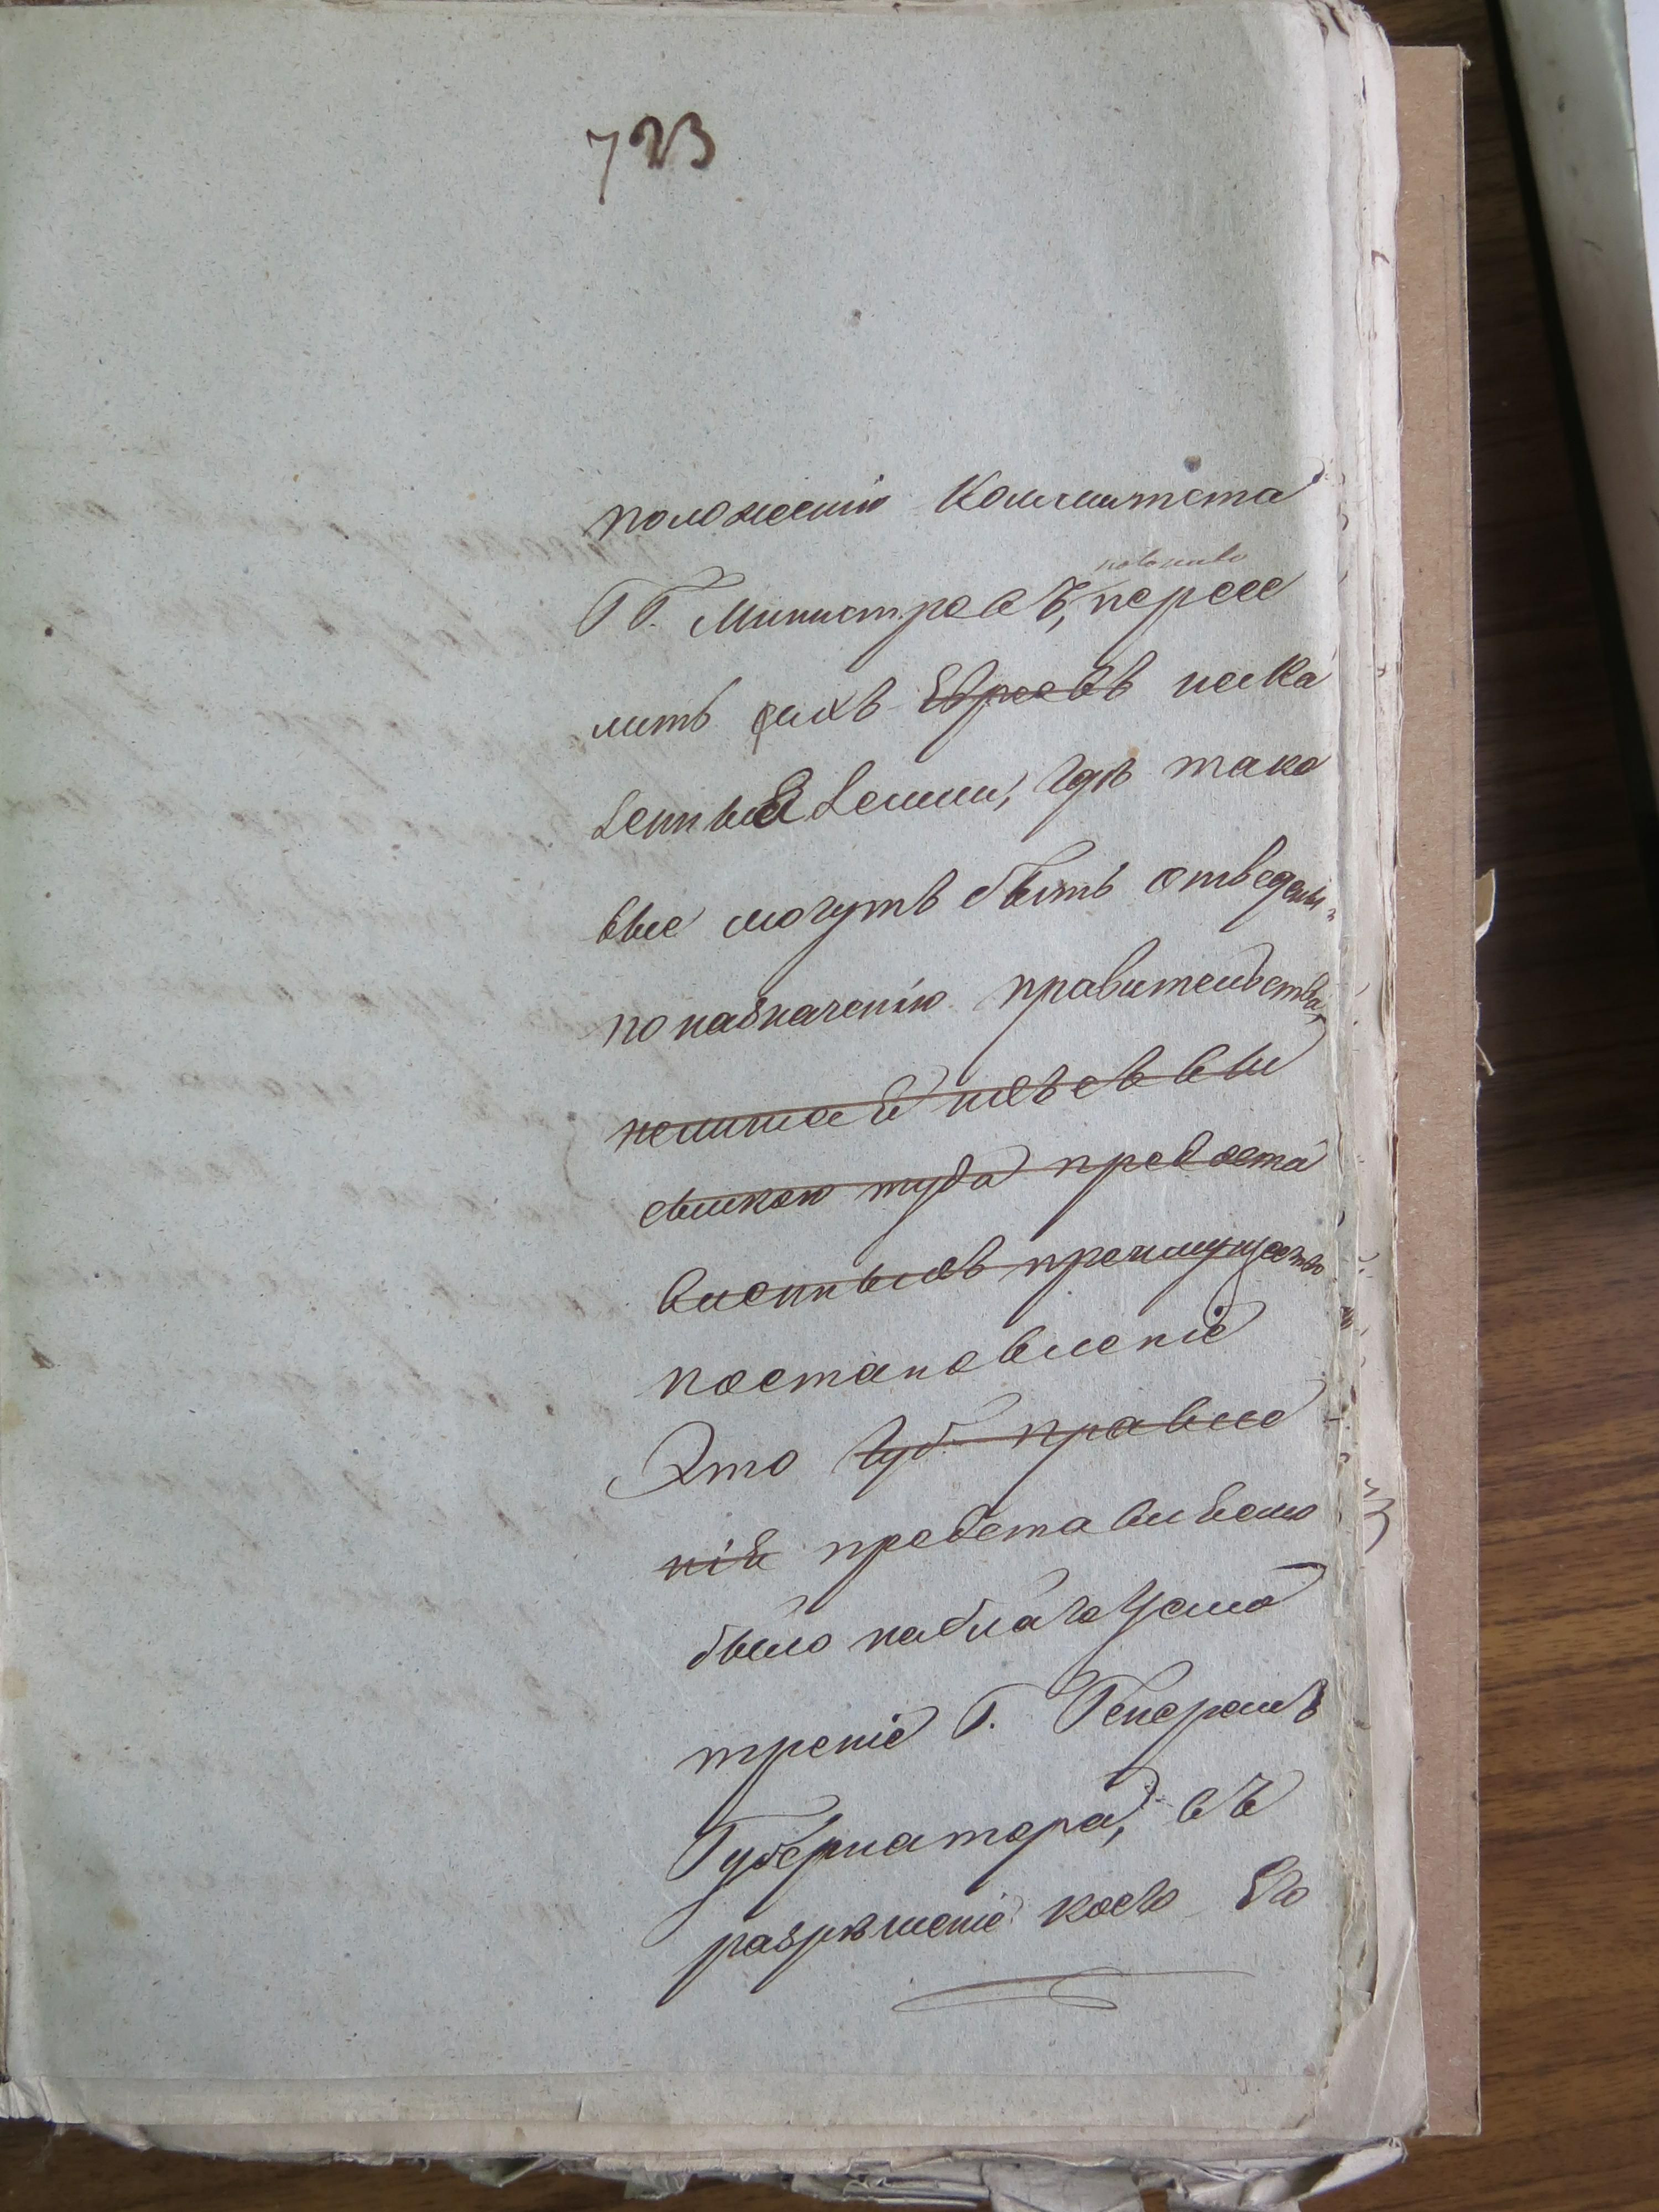 723
положенію Коммитета
ГГ. Министровъ, пересе
лить ихъ Евреевъ на ка
зенныя земли, гдѣ тако
выя могутъ быть отведены
по назначенію правительства,
нелишая ихъ съ вы
сылкою туда предоста
вленныхъ преимуществъ
постановленіе
Это Губ. правле
ніе представлено
было на благоусмо
трѣніе Г. Генералъ
Губернатора, въ
разрѣшеніе коего Его